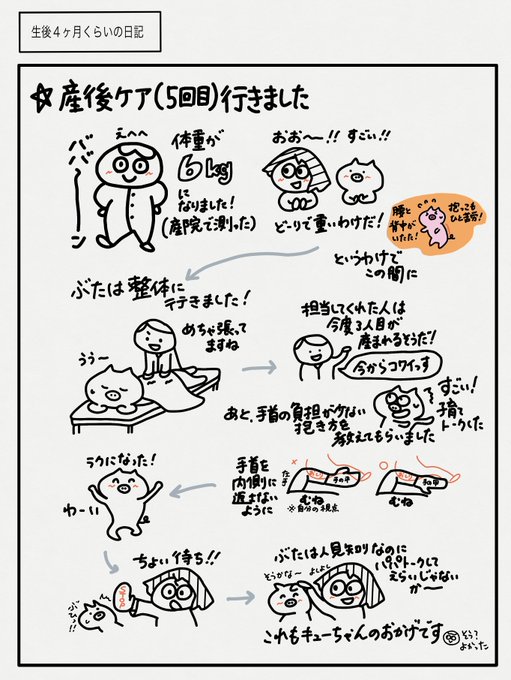 生後4ヶ月くらいの日記
☆産後ケア(5回目)行きました
ババーン
えへへ
体重が
6kg
になりました!
(産院で測った)
おお〜!!すごい!!
どーりで重いわけだ!
腰と
背中が
いたた!
抱っても
ひと苦労!
というわけで
この間に
ぶたは整体に
行きました!
めちゃ張って
ますね
うう〜
担当してくれた人は
今度3人目が
産まれるそうだ!
今からコワイっす
すごい!
子育て
トークした
あと、手首の負担が少ない
抱き方を
教えてもらいました
ラクになった!
わーい
手首を
内側に
返さない
ように
×
左手
おしり
手の平
むね
※自分の視点
○
おしり
手の甲
むね
ちょい待ち!!
ぶひっ!!
ぶたは人見知りなのに
パパトークして
えらいじゃない
か〜
そうかな〜
よしよし
これもキューちゃんのおかげです
そう?
よかった